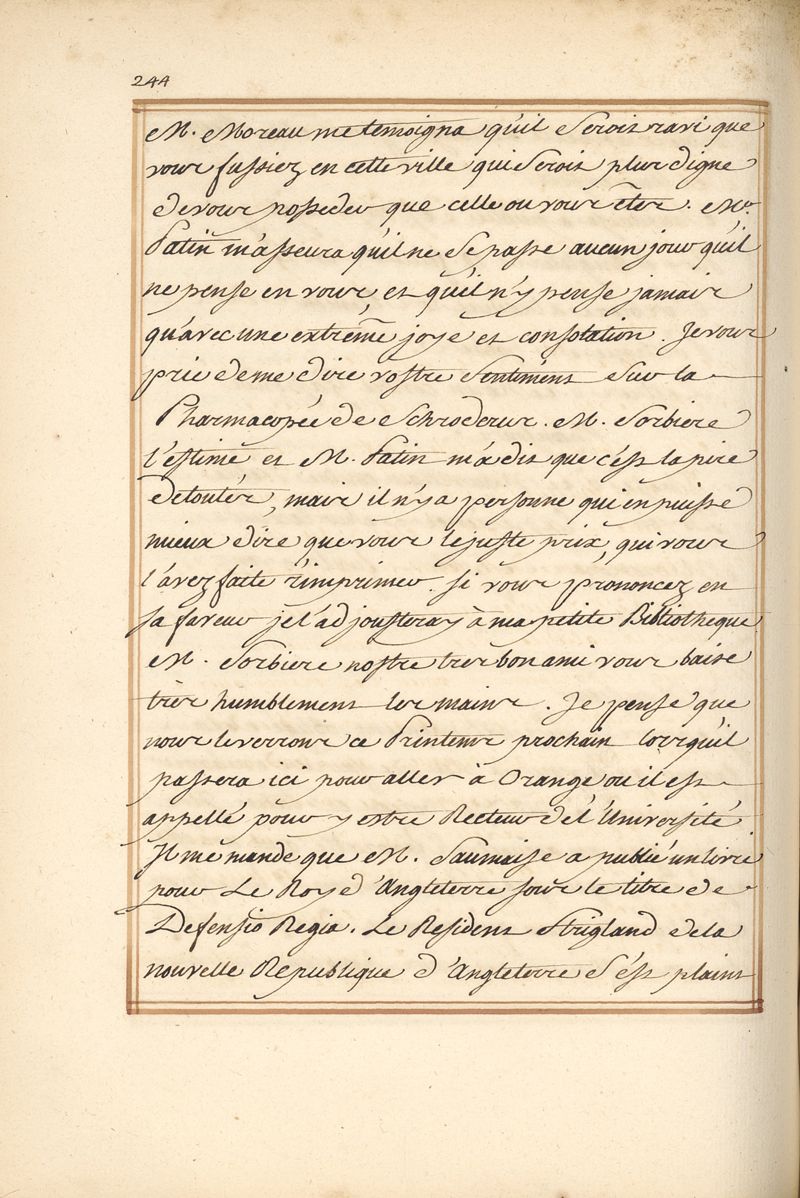 244
M. Moreau me temoigna qu'il seroit ravi que
vous fussiez en cette ville qui seroit plus digne
de vous posseder que celle ou vous êtes. Mr.
Patin m'asseura qu'il ne se passe aucun jour qu'il
ne pense en vous, et qu'il n'y pense jamais
qu'avec une extrême joye et consolation. Je vous
prie de me dire vostre sentiment sur la
Pharmacopée de Schroderus. M. Sorbiere
l'estime et M. Patin m'a dit que c'est la pire
de toutes, mais il n'y a personne qui en puisse
mieux dire que vous le juste prix, qui vous
l'avez faite r'imprimer. si vous prononcez en
sa faveur je l'adjousteray à ma petite Bibliotheque
M. Sorbiere nostre tres bon ami vous baise
tres humblement les mains. Je pense que
nous le verrons ce Printems prochain lorsqu'il
passera ici pour aller à Orange ou il est
appellé pour y estre Recteur de l'Université
Il me mande que M. Saumaise a publié un livre
pour Le Roy d'Angleterre sous le titre de
Defensio Regia. Le Resident Strigland de la
nouvelle Republique d'Angleterre s'est plaint